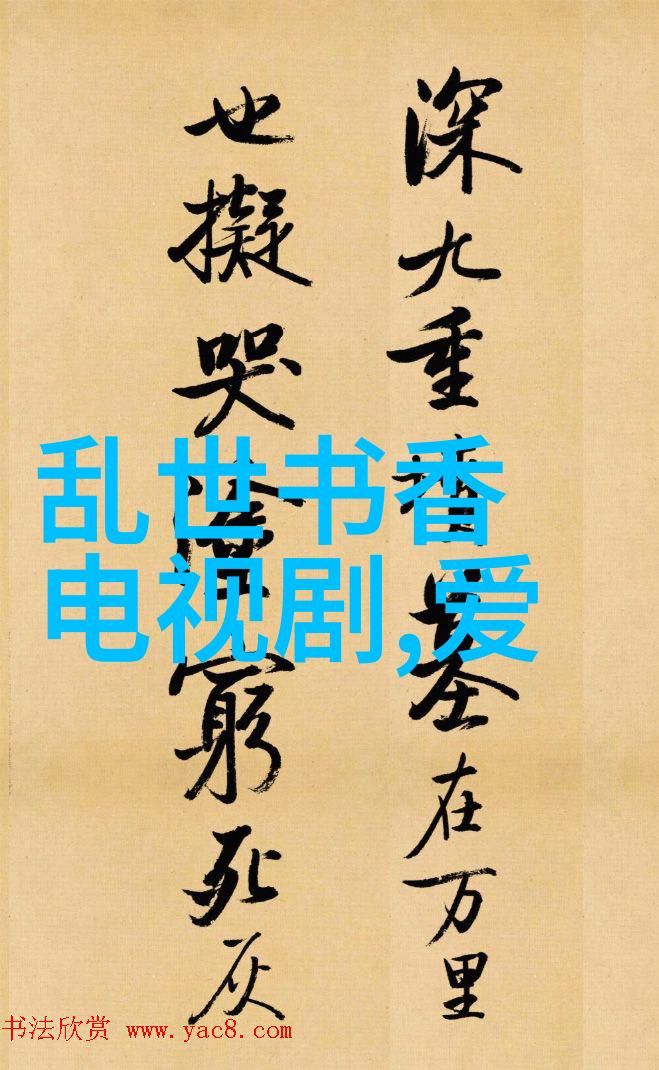 深九重墳墓在万里
也擬哭塗窮死灰
乱世书香
电视剧,爱
书法欣赏 www.yac8.com